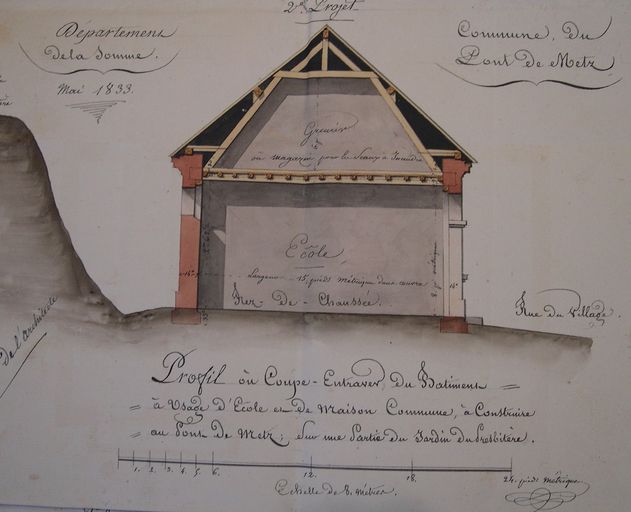 2e Projet
Département
de la Somme.
Mai 1833.
Commune, du
Pont de Metz
Grenier
où magazin pour les Seaux à Incendie
École
Largeur 15 pieds métrique dans œuvre
Rez - de - Chaussée.
Rue du Village.
De l'architecte
Profil où Coupe - Entraver, du Batiment
à Usage d'École et De Maison Commune, à Construire
au Pont De Metz; Sur une Partie du Jardin Du Presbitère.
1. 2. 3. 4. 5. 6. 12. 18. 24. pieds métrique
Echelle de 8. métres.